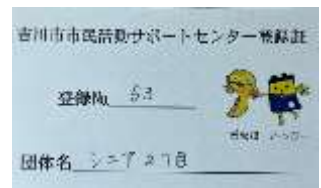 吉川市市民活動サポートセンター登録証
登録No 52
団体名 シニア27日